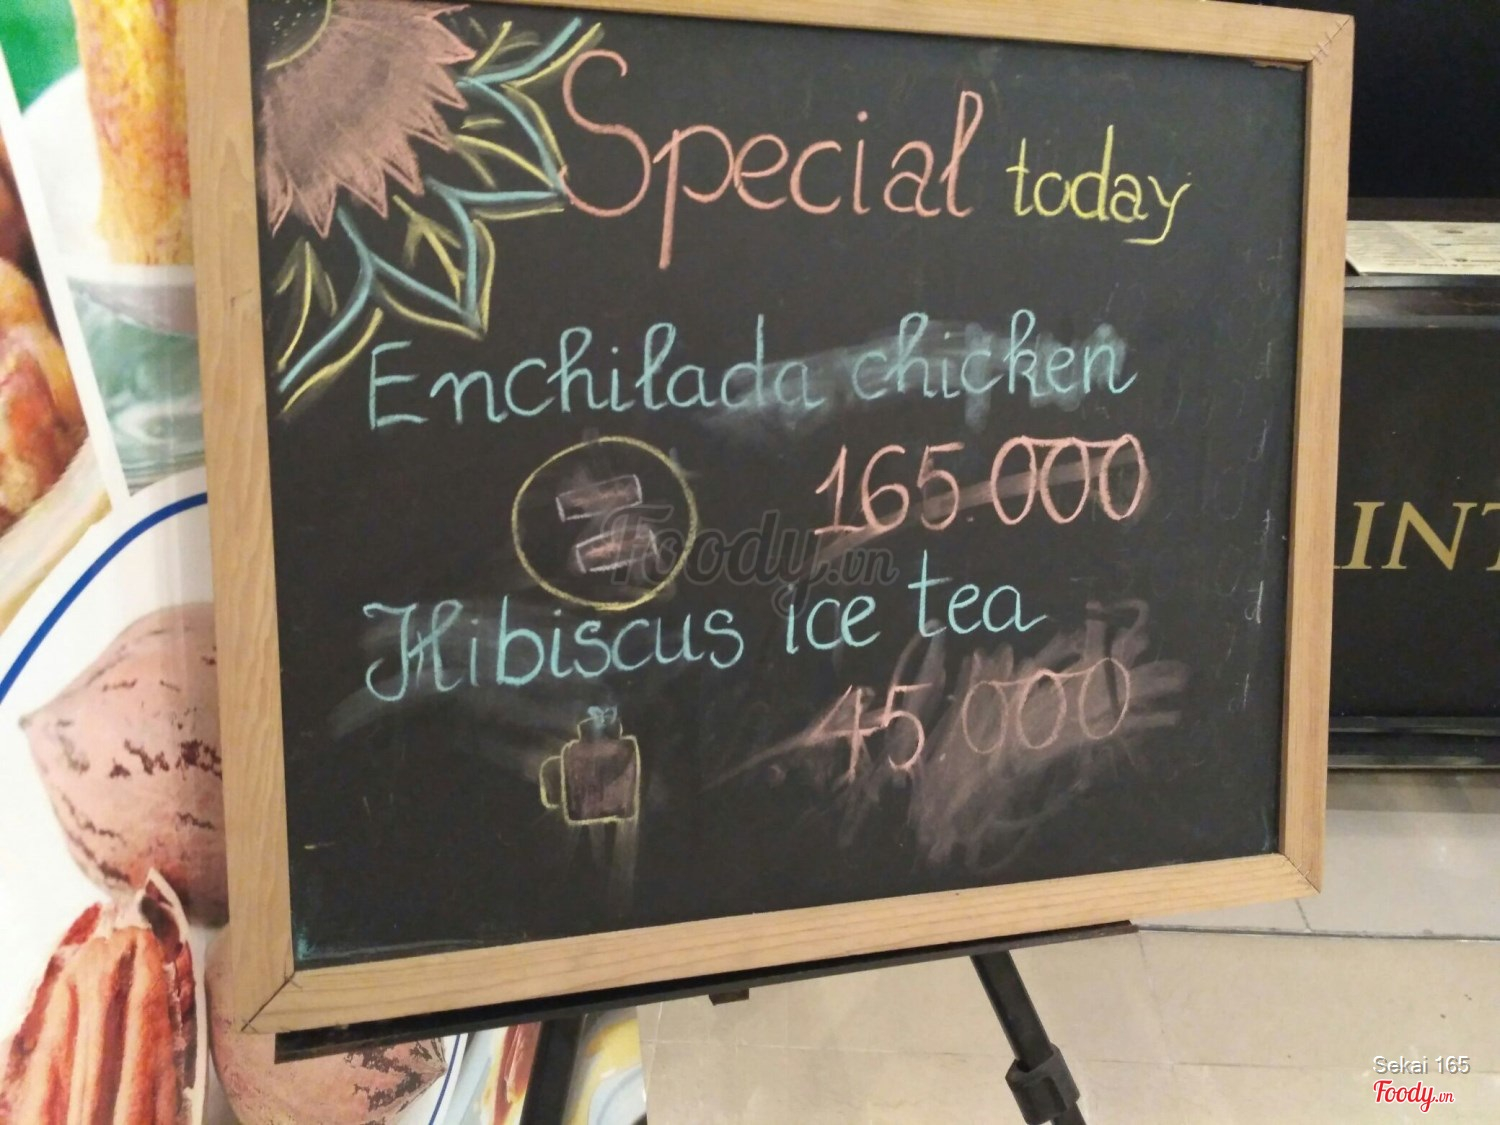 Special today
Enchilada chicken
165.000
Foody.vn
Hibiscus ice tea
45.000
INT
Sekai 165
Foody.vn